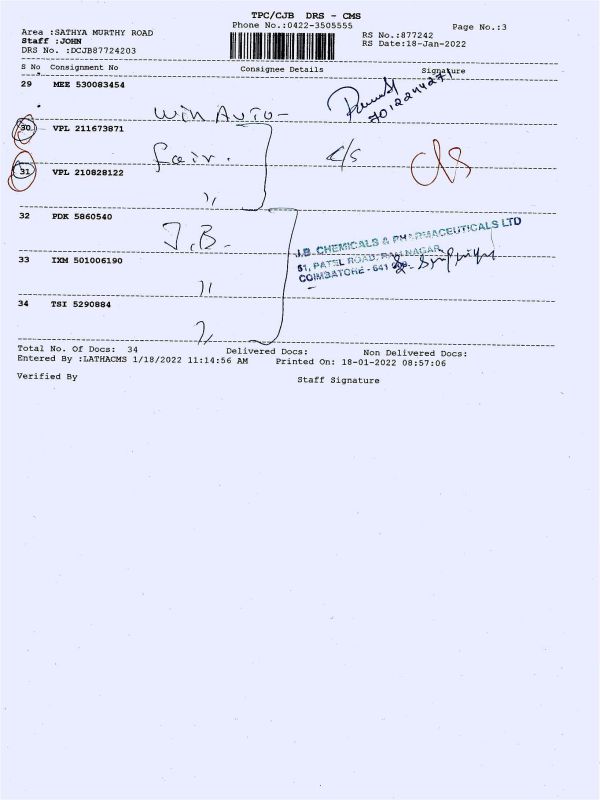 TPC/CJB DRS - CMS
Phone No.:0422-3505555
Page No.:3
Area :SATHYA MURTHY ROAD
Staff :JOHN
DRS No. :DCJB87724203
RS No.:877242
RS Date:18-Jan-2022
S No Consignment No Consignee Details Signature
29 MEE 530083454
Win AUTO -
7012244271
30 VPL 211673871
fair.
c/s
31 VPL 210828122
"
32 PDK 5860540
J.B.
J.B. CHEMICALS & PHARMACEUTICALS LTD
51, PATEL ROAD, RAM NAGAR,
COIMBATORE - 641 009.
33 IXM 501006190
"
34 TSI 5290884
"
Total No. Of Docs: 34 Delivered Docs: Non Delivered Docs:
Entered By :LATHACMS 1/18/2022 11:14:56 AM Printed On: 18-01-2022 08:57:06
Verified By Staff Signature